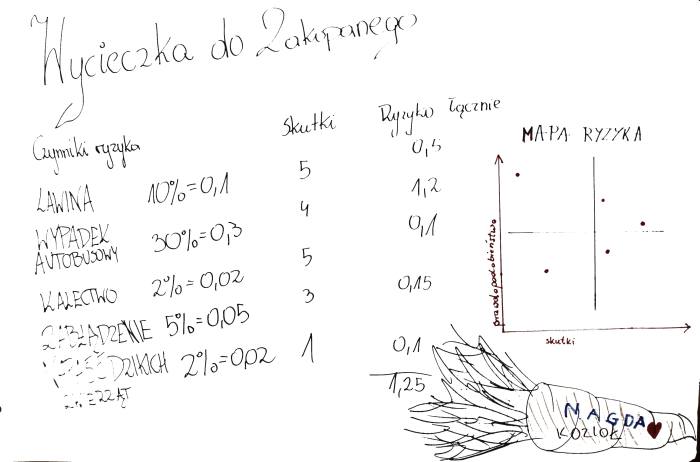 Wycieczka do Zakopanego
Czynniki ryzyka
skutki
Ryzyko łącznie
LAWINA 10%=0,1 5 0,5
WYPADEK AUTOBUSOWY 30%=0,3 4 1,2
KALECTWO 2%=0,02 5 0,1
ZABŁĄDZENIE 5%=0,05 3 0,15
DZIKICH ZWIERZĄT 2%=0,02 1 0,1
1,25
MAPA RYZYKA
prawdopodobieństwo
skutki
MAGDA
KOZIOŁ